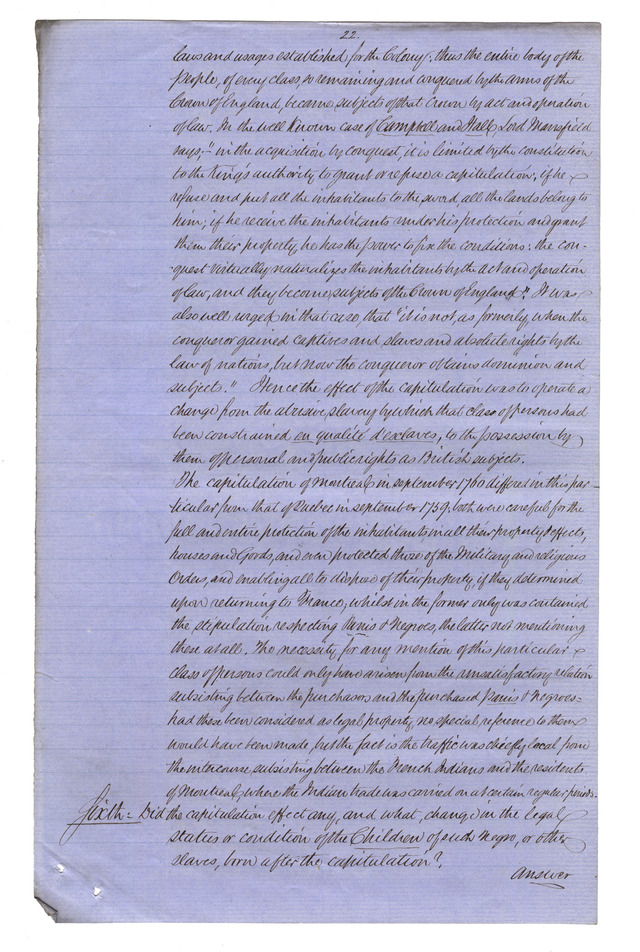 22.
laws and usages established for the Colony; thus the entire body of the
People, of every class, so remaining and conquered by the arms of the
Crown of England, became subjects of that Crown by act and operation
of law. In the well known case of Campbell and Hall, Lord Mansfield
says; "in the acquisition by conquest, it is limited by the constitution
to the King's authority to grant or refuse a capitulation; if he
refuse and put all the inhabitants to the sword, all the lands belong to
him; if he receive the inhabitants under his protection and grant
them their property, he has the power to fix the conditions: the con-
-quest virtually naturalizes the inhabitants by the act and operation
of law, and they become subjects of the Crown of England". It was
also well urged in that case, that "it is not, as formerly, when the
conqueror gained captives and slaves and absolute rights by the
law of nations, but now the conqueror obtains dominion and
subjects." Hence the effect of the capitulation was to operate a
change from the abusive slavery by which that class of persons had
been constrained en qualité d'esclaves, to the possession by
them of personal and public rights as British subjects.
The capitulation of Montreal in september 1760 differed in this par-
ticular from that of Quebec in september 1759; both were careful for the
full and entire protection of the inhabitants in all their property & effects,
houses and Goods, and even protected those of the Military and religious
Orders, and enabling all to dispose of their property, if they determined
upon returning to France; whilst in the former only was contained
the stipulation respecting Panis & Negroes, the latter not mentioning
these at all. The necessity for any mention of this particular
class of persons could only have arisen from the unsatisfactory relation
subsisting between the purchasers and the purchased Panis & Negroes-
had these been considered as legal property, no special reference to them
would have been made, but the fact is the traffic was chiefly local, from
the intercourse, subsisting between the French Indians and the residents
of Montreal, where the Indian trade was carried on at certain regular periods.
Sixth = Did the capitulation effect any, and what, change in the legal
status or condition of the Children of such Negro, or other
slaves, born after the capitulation?
Answer